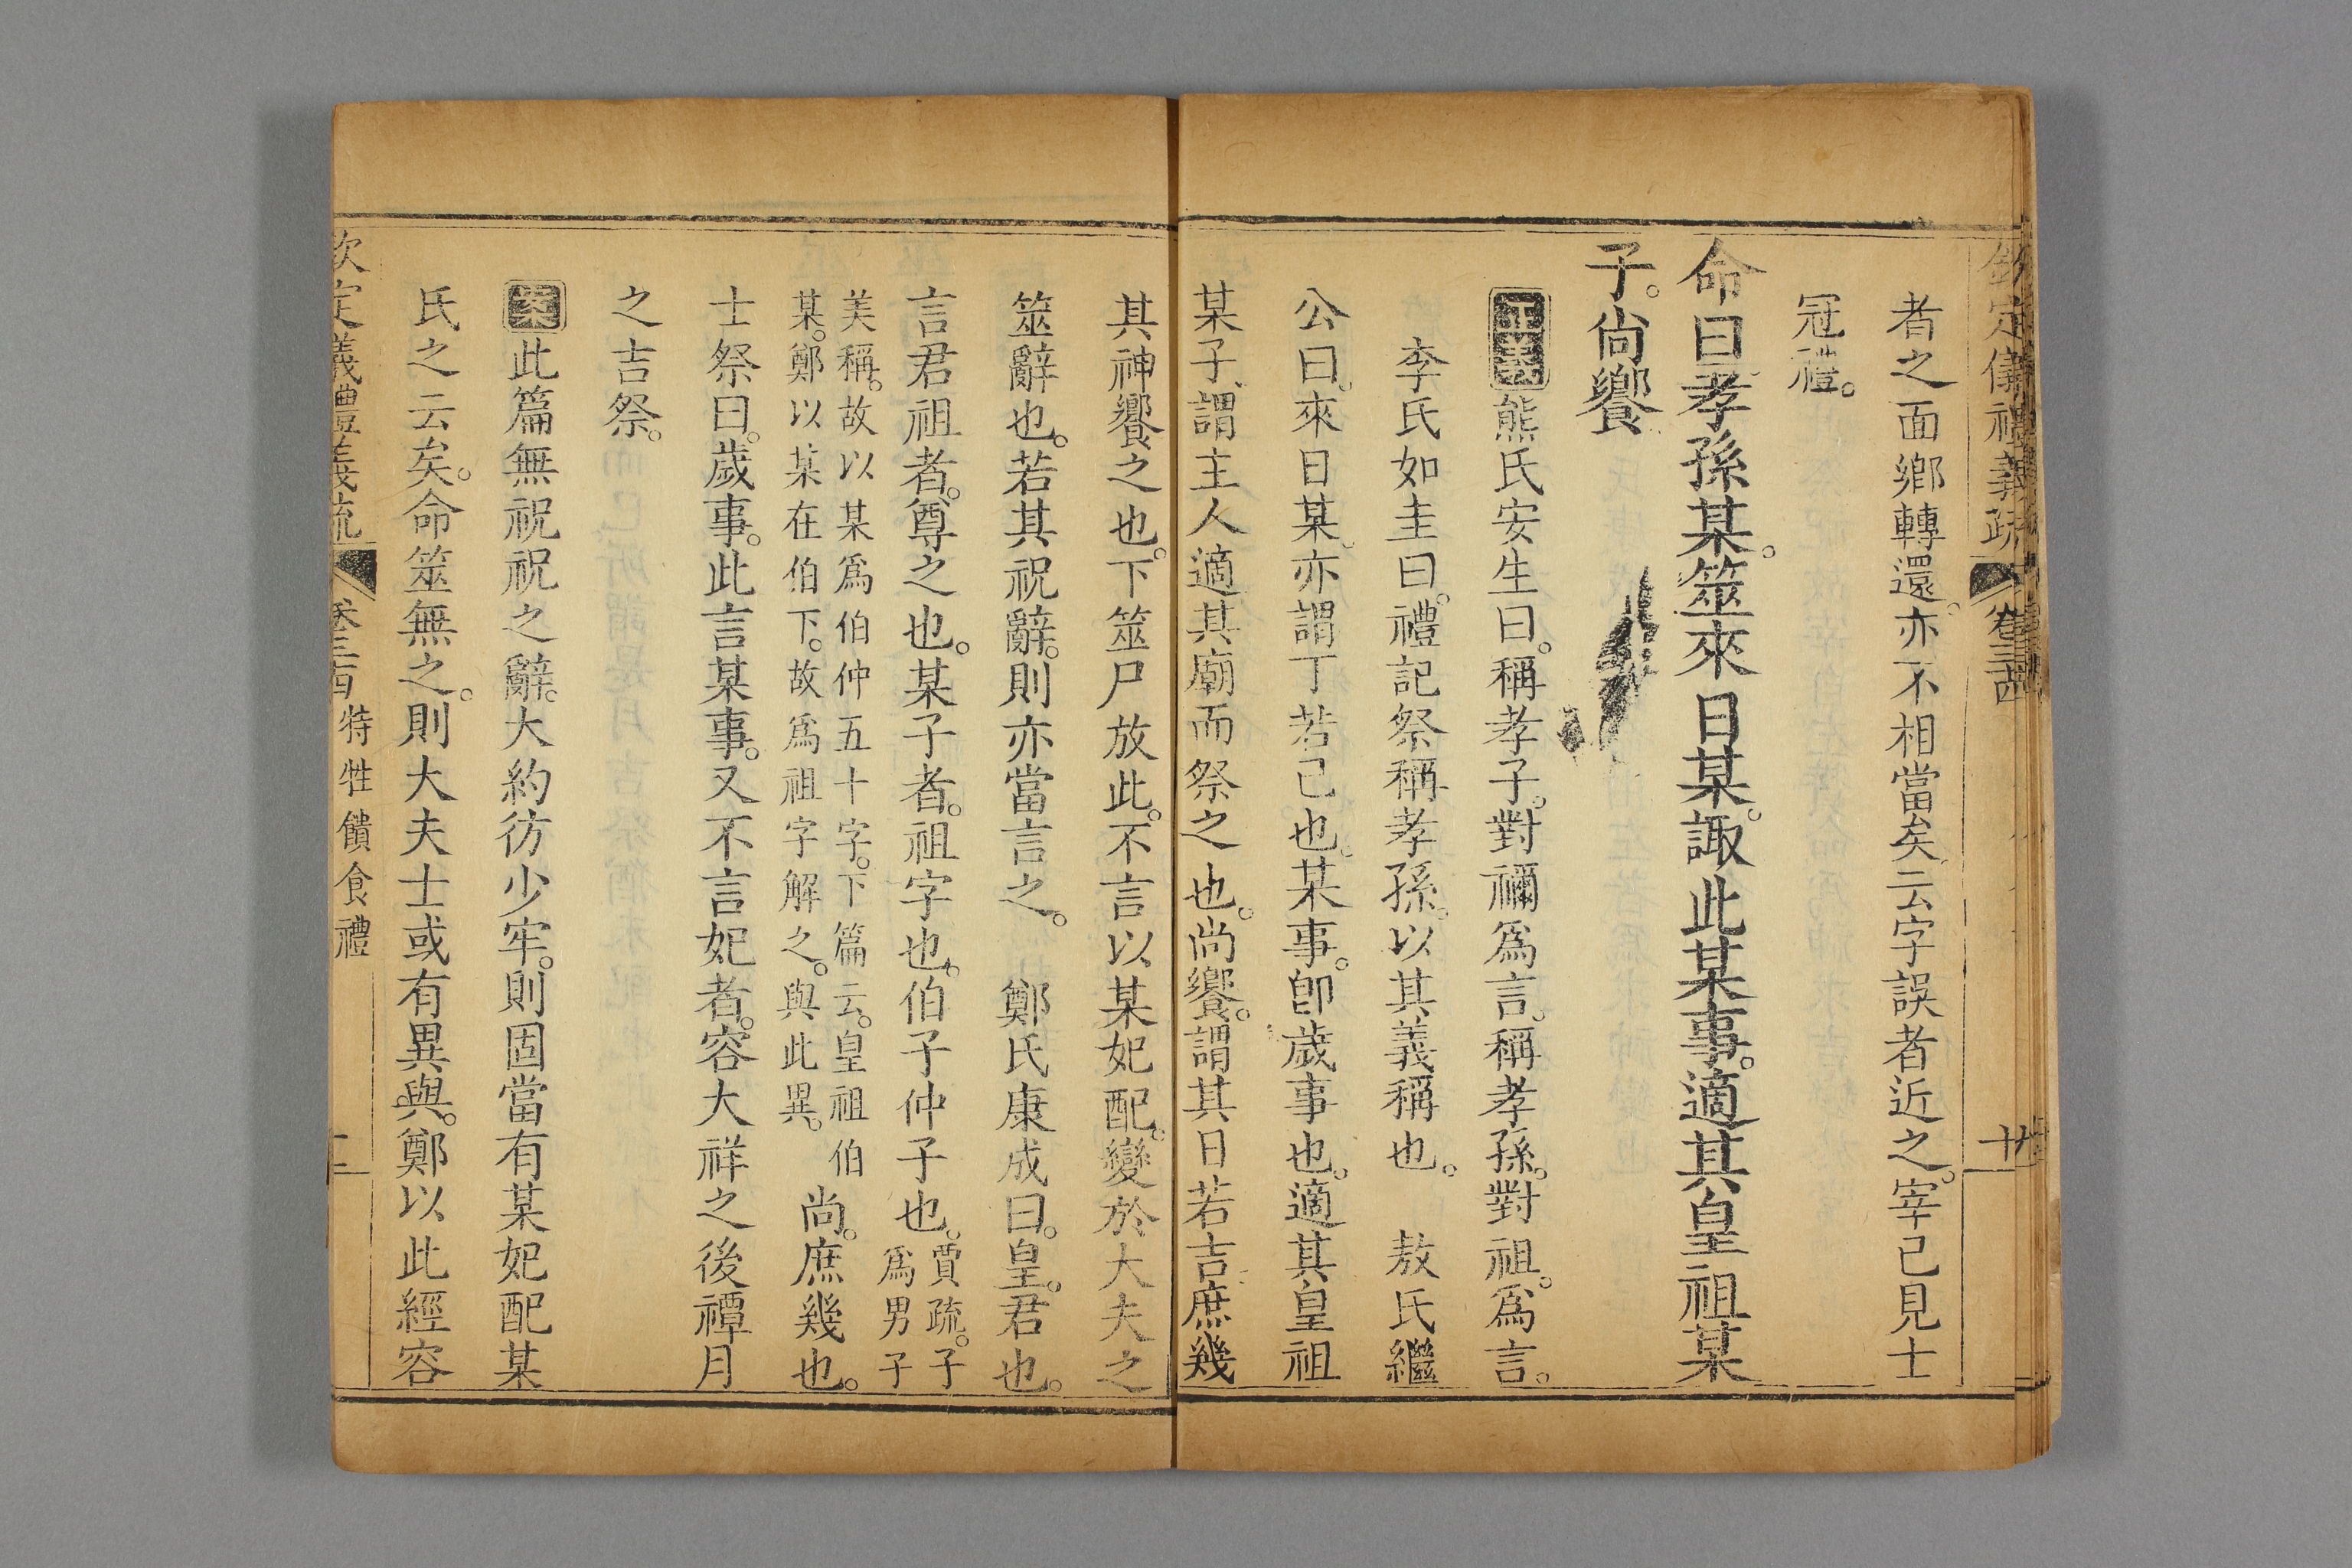 欽定儀禮義疏 卷三十四
者之面鄉轉還亦不相當矣云字誤者近之。宰己見士
冠禮。
命曰孝孫某。筮來日某。諏此某事。適其皇祖某
子。尚饗
正義熊氏安生曰。稱孝子。對禰爲言。稱孝孫。對祖。爲言。
李氏如圭曰。禮記祭稱孝孫。以其義稱也。 敖氏繼
公曰。來日某、亦謂丁若己也。某事。卽歲事也。適其皇祖
某子、謂主人適其廟而祭之也。尚饗。謂其日若吉庶幾
其神饗之也。下筮尸放此。不言以某妃配。變於大夫之
筮辭也。若其祝辭。則亦當言之。 鄭氏康成曰。皇。君也。
言君祖者。尊之也。某子者。祖字也。伯子仲子也。賈疏。子
爲男子
美稱。故以某爲伯仲五十字。下篇云。皇祖伯
某。鄭以某在伯下。故爲祖字解之。與此異。
尚。庶幾也。
士祭曰。歲事。此言某事。又不言妃者。容大祥之後禫月
之吉祭。
案此篇無祝祝之辭。大約彷少牢。則固當有某妃配某
氏之云矣。命筮無之。則大夫士或有異與。鄭以此經容
欽定義禮義疏 卷三十四 特牲饋食禮